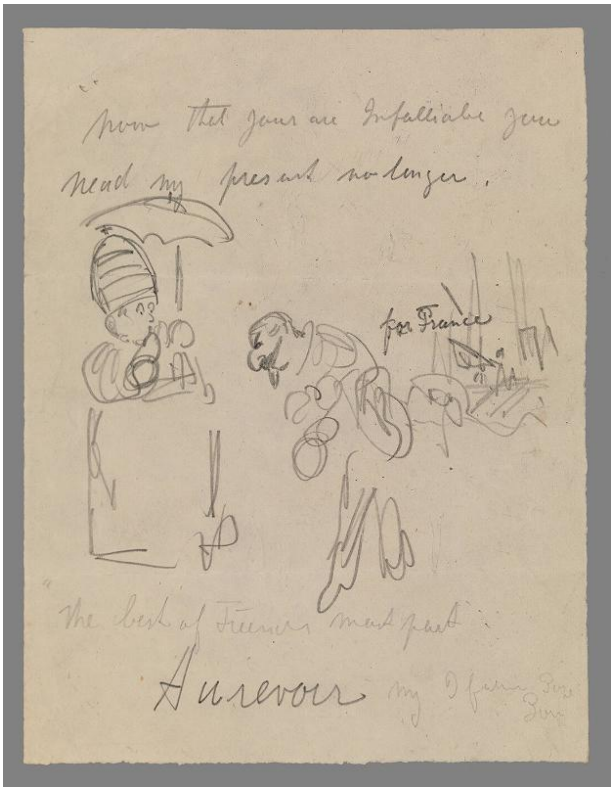 now that your are Infalliabe you
need my present no longer.
for France
the best of Friends must part
Au revoir my